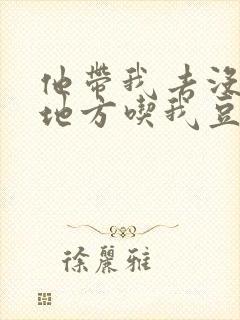 他帶我去沒
地方喫我豆
徐麗雅